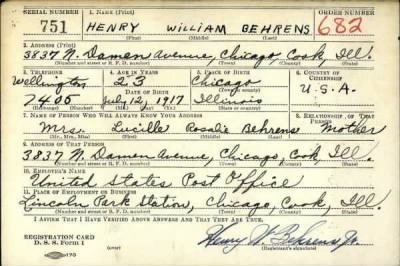 SERIAL NUMBER 1. NAME (Print) ORDER NUMBER
751 HENRY WILLIAM BEHRENS 682
(First) (Middle) (Last)
2. ADDRESS (Print)
3837 N. Damen Avenue, Chicago, Cook, Ill.
(Number and street or R. F. D. number) (Town) (County) (State)
3. TELEPHONE 4. AGE IN YEARS 5. PLACE OF BIRTH 6. COUNTRY OF CITIZENSHIP
Wellington 23 Chicago
DATE OF BIRTH (Town or county) U.S.A.
7406 July 12, 1917 Illinois
(Mo.) (Day) (Yr.) (State or country)
7. NAME OF PERSON WHO WILL ALWAYS KNOW YOUR ADDRESS 8. RELATIONSHIP OF THAT PERSON
Mrs. Lucille Rosalie Behrens Mother
(Mr., Mrs., Miss) (First) (Middle) (Last)
9. ADDRESS OF THAT PERSON
3837 N. Damen Avenue, Chicago, Cook, Ill.
(Number and street or R. F. D. number) (Town) (County) (State)
10. EMPLOYER'S NAME
United States Post Office
11. PLACE OF EMPLOYMENT OR BUSINESS
Lincoln Park Station, Chicago, Cook, Ill.
(Number and street or R. F. D. number) (Town) (County) (State)
I AFFIRM THAT I HAVE VERIFIED ABOVE ANSWERS AND THAT THEY ARE TRUE.
REGISTRATION CARD
D. S. S. Form 1 Henry W. Behrens Jr.
(Registrant's signature)